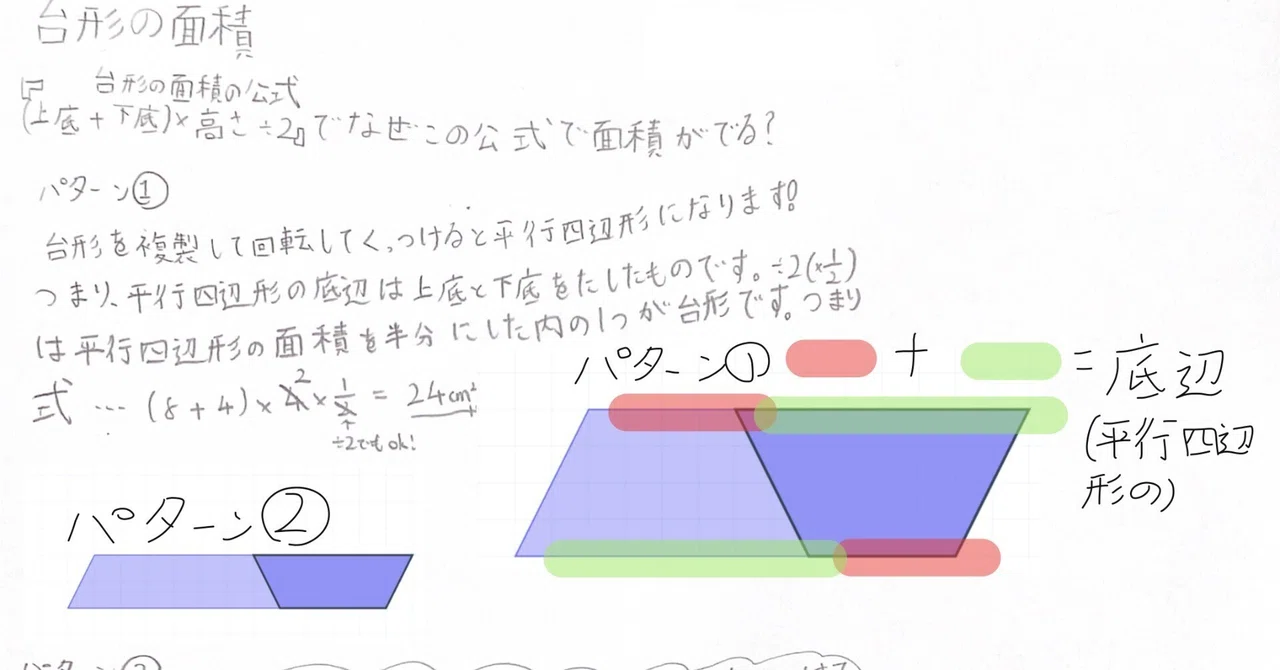 台形の面積
『 台形の面積の公式
(上底+下底)×高さ÷2』でなぜこの公式で面積がでる?
パターン①
台形を複製して回転してくっつけると平行四辺形になります!
つまり、平行四辺形の底辺は上底と下底をたしたものです。÷2(×1/2)
は平行四辺形の面積を半分にした内の1つが台形です。つまり
式 … (8+4)×4 2×1/2=24cm²
÷2でもok!
パターン① + =底辺
(平行四辺
形の)
パターン②